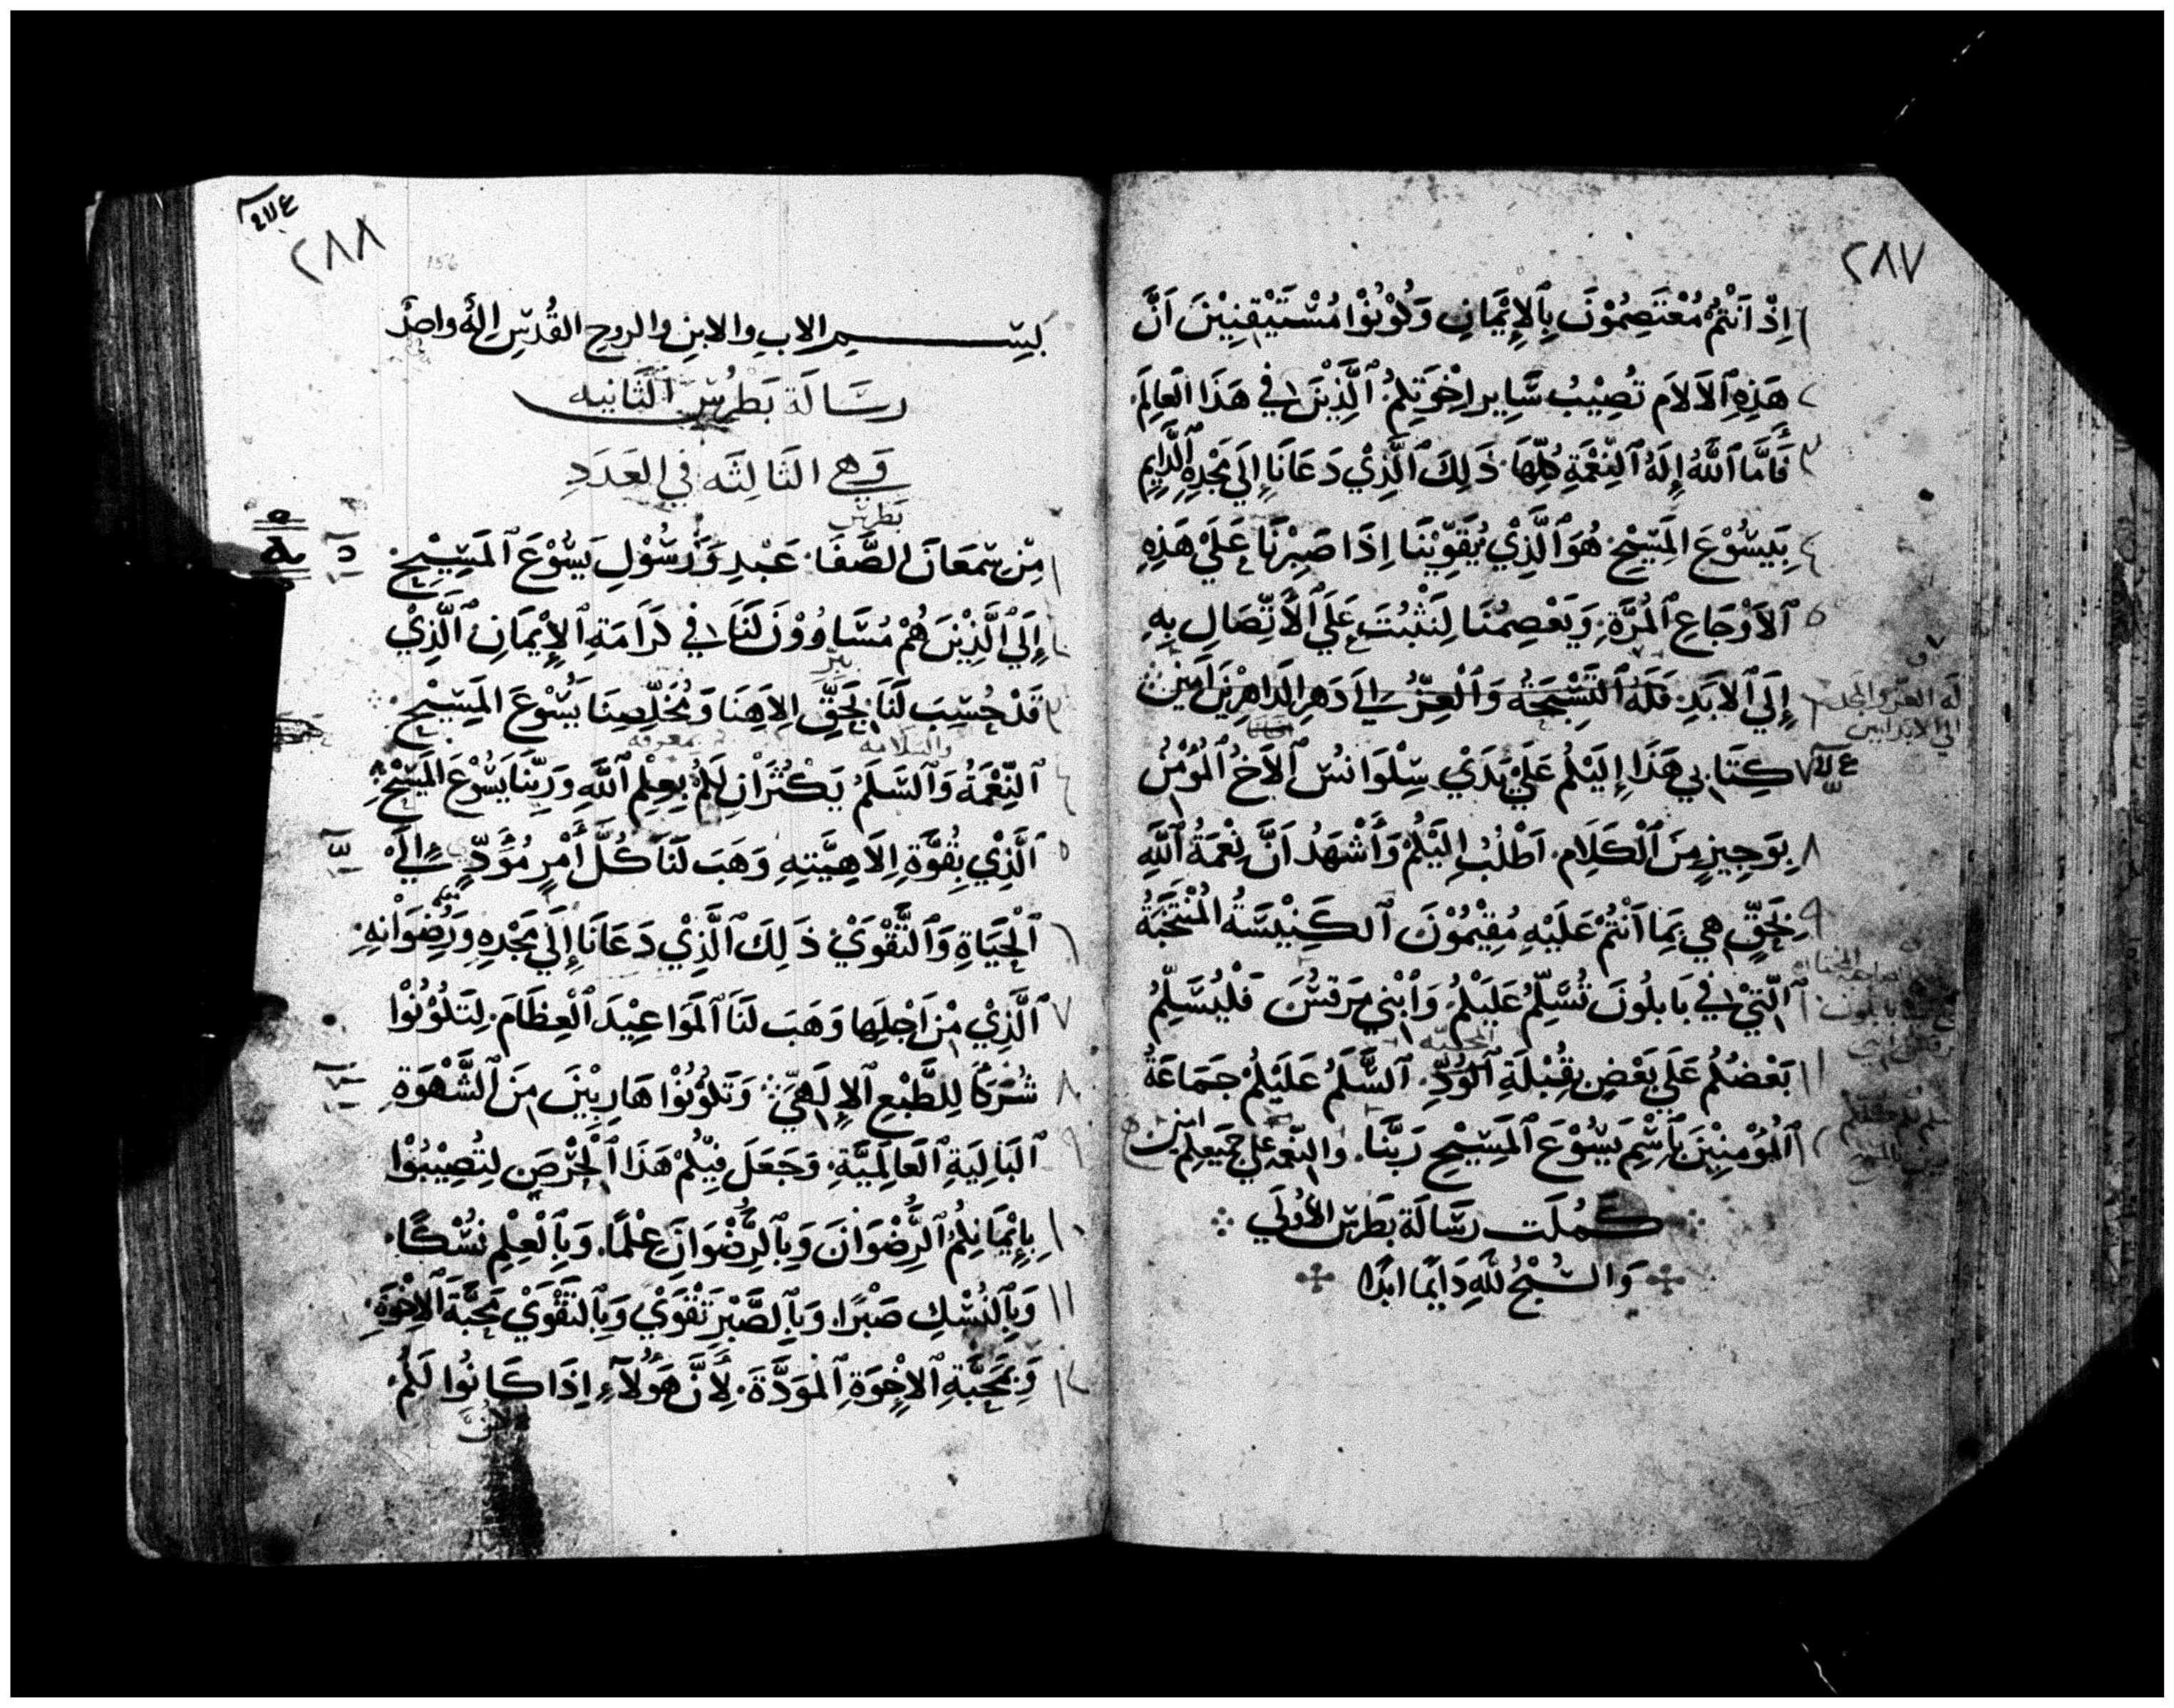 ٢٨٧
١ اِذْ اَنْتُمْ مُعْتَصِمُوْنَ بِٱلاِيْمَانِ وَكُوْنُوْا مُسْتَيْقِنِيْنَ اَنَّ
٢ هَذِهِ ٱلاَلاَم تُصِيْبُ سَايِر اِخْوَتِكُمُ ٱلَّذِيْنَ فِي هَذَا العَالَم
٣ فَأَمَّا ٱللَّهُ إِلَهُ ٱلنِّعْمَةِ كُلِّهَا ذَلِكَ ٱلَّذِيْ دَعَانَا إِلَي مَجْدِهِ ٱلدَّايِمِ
٤ بِيَسُوْعَ المَسِيْحِ هُوَ ٱلَّذِيْ يُقَوِّيْنَا اِذَا صَبِرْنَا عَلَيْ هَذِهِ
٥ ٱلاَوْجَاعِ ٱلمُرَّةِ وَيَعْصِمُنَا لِنَثْبُتَ عَلَي ٱلاَتِّصَالِ بِهِ
٦ إِلَي ٱلاَبَدِ فَلَهُ ٱلتَّسْبِحَةُ وَٱلْعِزُّ إِلَي دَهرِ الدَاهِرِيْنَ اَمِيْن
له العز والمجد
الي الابد امين
٧ كِتَابِي هَذَا إِلَيْكُمْ عَلَيْ يَدَيْ سِلْوَانُسْ ٱلاَخِ ٱلمُوْمُنْ
٨ بِوَجِيزٍ مِنَ ٱلْكَلَامِ اَطْلُبُ اِلَيْكُمْ وَأَشْهَدُ اَنَّ نِعْمَةُ ٱللَّهِ
٩ بِحَقٍّ هِي بِمَا اَنْتُمْ عَلَيْهِ مُقِيْمُوْنَ ٱلكَنِيْسَةُ المُنْتَخَبَةُ
١٠ ٱلَّتِيْ فِي بَابلُونَ تُسَلِّمُ عَلَيْكُمْ وَٱبْنِي مَرقسْ فَليُسَلِّمُ
١١ بَعْضُكُم عَلَي بَعْضٍ بِقُبْلَةِ ٱلوُدِّ ٱلسَّلَمُ عَلَيْكُمْ جَمَاعَةُ
١٢ ٱلمُؤْمِنِيْنَ بِٱسْمِ يَسُوْعَ ٱلمَسِيْحِ رَبَّنَا والنِّعمه علي جميعكم امين
كَمُلَت رِسَالَة بَطرسْ الأُولَي
وَالسُبْحُ لِلّهِ دَايِمًا ابَدًا
٢٨٨
156
بِسْمِ الابِ والابنِ والروحِ القُدسِ اِلهٌ واحدٌ
رِسَالَة بَطرُسْ ٱلثَّانيه
وَهي الثَالثَه في العَدَدِ
بَطرسْ
١ مِنْ سِمعَانَ الصَّفَا عَبْدِ وَرَسُوْلِ يَسُوْعَ ٱلمَسِيْحِ
٢ إِلَي ٱلَّذِيْنَ هُمْ مُسَاوُوْنَ لَنَا فِي كَرَامَةِ ٱلاِيْمَانِ ٱلَّذِيْ
ببرّ
٣ قَدْ حُسِبَ لَنَا بِحَقِّ اِلاَهِنَا وَمُخَلِّصِنَا يَسُوْعَ المَسِيْحِ
والسلامه معرفه
٤ ٱلنِّعْمَةُ وَٱلسَّلَمُ يَكْثُرَانِ لَكُمْ بِعِلْمِ ٱللَّهِ وَرَبِّنَا يَسُوْعَ المَسِيْحِ
٥ ٱلَّذِيْ بِقُوَّةِ اِلاَهِيَّتِهِ وَهَبَ لَنَا كُلَّ أَمْرٍ مُؤَدٍّ إِلَيْ
٦ ٱلْحَيَاةِ وَٱلتَّقْوَيْ ذَلِكَ ٱلَّذِيْ دَعَانَا إِلَي مَجْدِهِ وَرِضْوَانِهِ
٧ ٱلَّذِيْ مِنْ اَجلِهَا وَهَبَ لَنَا ٱلمَوَاعِيْدَ ٱلْعِظَامَ لِتَكُوْنُوْا
٨ شُرَكَا لِلطَّبْعِ ٱلاِلَهِيّ وَتَكُوْنُوْا هَارِبِيْنَ مِنَ ٱلشَّهْوَةِ
٩ ٱلبَالِيَةِ ٱلعَالَمِيَّةِ وَجَعَلَ فِيْكُمْ هَذَا ٱلْحِرْصَ لِتُصِيْبُوْا
١٠ بِاِيْمَانِكُمُ ٱلرِّضْوَانَ وَبِٱلرِّضْوَانِ عِلْمًا وَبِٱلْعِلْمِ نُسْكًا
١١ وَبِٱلنُسْكِ صَبْرًا وَبِٱلصَّبْرِ تَقْوَيْ وَبِٱلتَّقْوَيْ مَحَبَّةَ ٱلاِخْوَةِ
١٢ وَبِمَحَبَّةِ ٱلاِخْوَةِ ٱلمَوَدَّةَ لِأَنَّ هَؤُلَآءِ اِذَا كَانُوا لَكُمْ